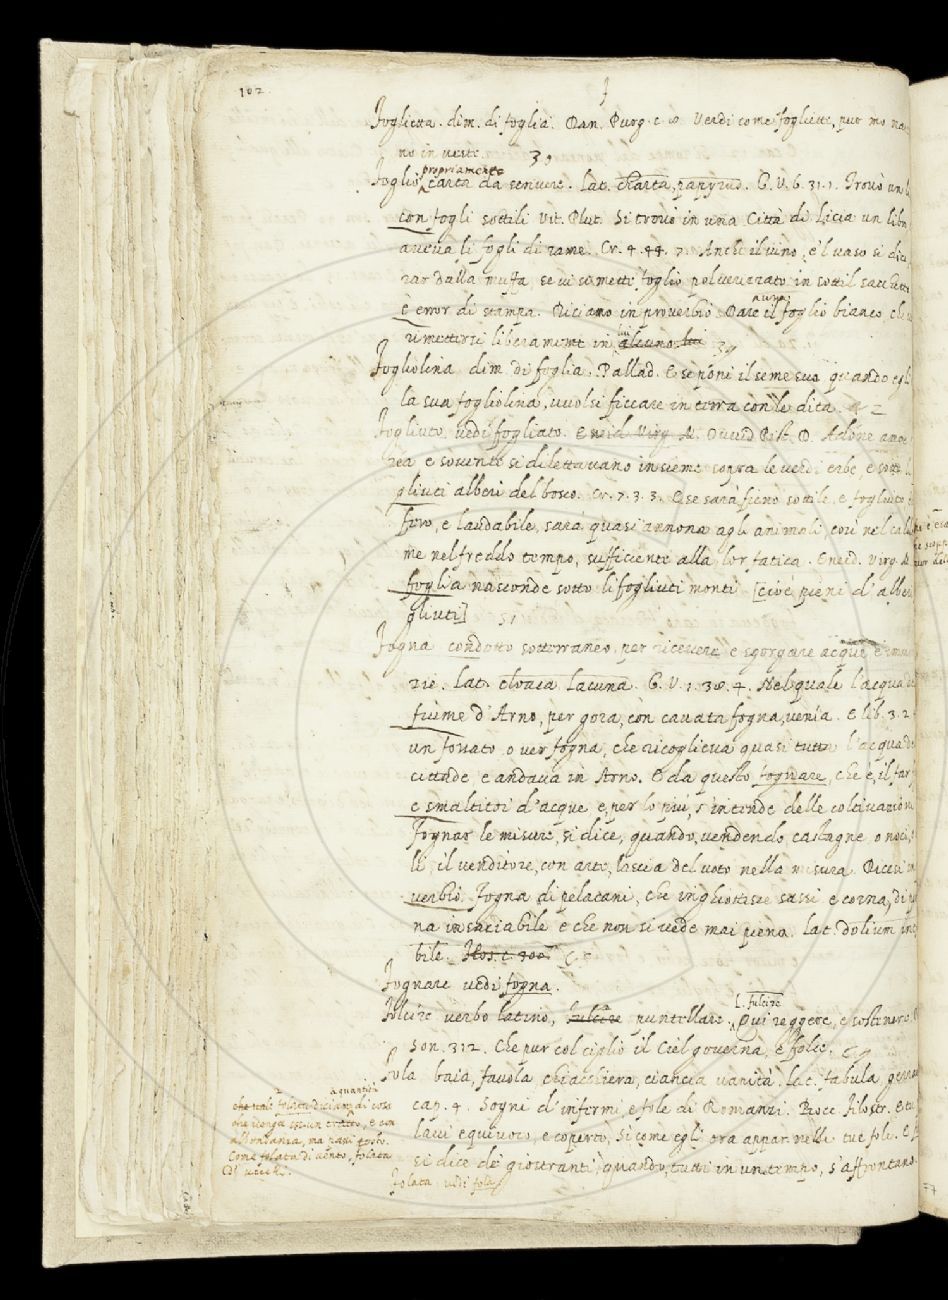 102.
f
foglietta. dim. di foglia. Dan. Purg. c. 8. Verdi come fogliette, pur mo na
no in veste. 30
foglio propriamente carta da scrivere. Lat. charta, papyrus. G. V. 6. 31. 1. Trovò un
con fogli sottili Vit. Plut. Si trovò in una Città di Licia un libr
aveva li fogli di rame. Cr. 4. 44. 7. Anche il vino, e 'l vaso si dic
rar dalla muffa se vi si mette foglio polverizzato in sottil sacchetto
è error di stampa. Diciamo in proverbio. Dare il foglio bianco, che
rimettersi liberamente in lui alcuno. 39
fogliolina dim. di foglia. Pallad. E se poni il seme suo quando egli
la sua fogliolina, vuolsi ficcare in terra con le dita. 42
fogliuto. vedi fogliato. Eneid. Virg. M. Ovvid. Pist. D. Adone
rea e sovente si dilettavano insieme sopra le verdi erbe e sott
gliuti alberi del bosco. Cr. 7. 3. 3. E se sarà fieno sottile, e fogliuto
furo, e laudabile, sarà quasi annona agli animali, così nel cal
me nel freddo tempo, sufficiente alla lor fatica. Eneid. Virg. M.
foglia nasconde sotto li fogliuti monti [cioè pieni d' alber
gliuti] 51
fogna condotto sotterraneo, per ricevere e sgorgare acque, e imm
zie. Lat. cloaca lacuna. G. V. 1. 38. 4. Nel quale l'acqua
fiume d'Arno, per gora, con cavata fogna, venia. E lib. 3. 2
un fossato o ver fogna, che ricoglieva quasi tutta l'acqua de
cittade e andava in Arno. E da questo fognare, che è, il far
e smaltitoi d'acque e, per lo più, s'intende delle coltivazion
fognar le misure, si dice, quando, vendendo castagne o noci,
le il venditore, con arte, lascia del voto nella misura. Dicesi in
verbio. Fogna di pelacani, che inghiottisce sassi e corna, di
na insaziabile e che non si vede mai piena. Lat. dolium in
bile.
fognare vedi fogna.
folcire verbo latino, fulcire puntellare. L. fulcire Qui reggere, e sostenere.
Son. 312. Che pur col ciglio il Ciel governa, e folce.
fola baia, favola chiacchiera, ciancia vanità. Lat. fabula gerrae
cap. 4. Sogni d'infermi e fole di Romanzi. Bocc. Filostr. E tu
lavi equivoco, e coperto, Si come egli ora appar nelle tue fole. E
si dice de' giostranti, quando, tutti in un tempo, s'affrontano.
folata vedi fola
che vale folata diciamo a quantità di cose
che venga in un tratto, e con
abbondanza, ma passi tosto.
Come folata di vento, folata
di uccelli.